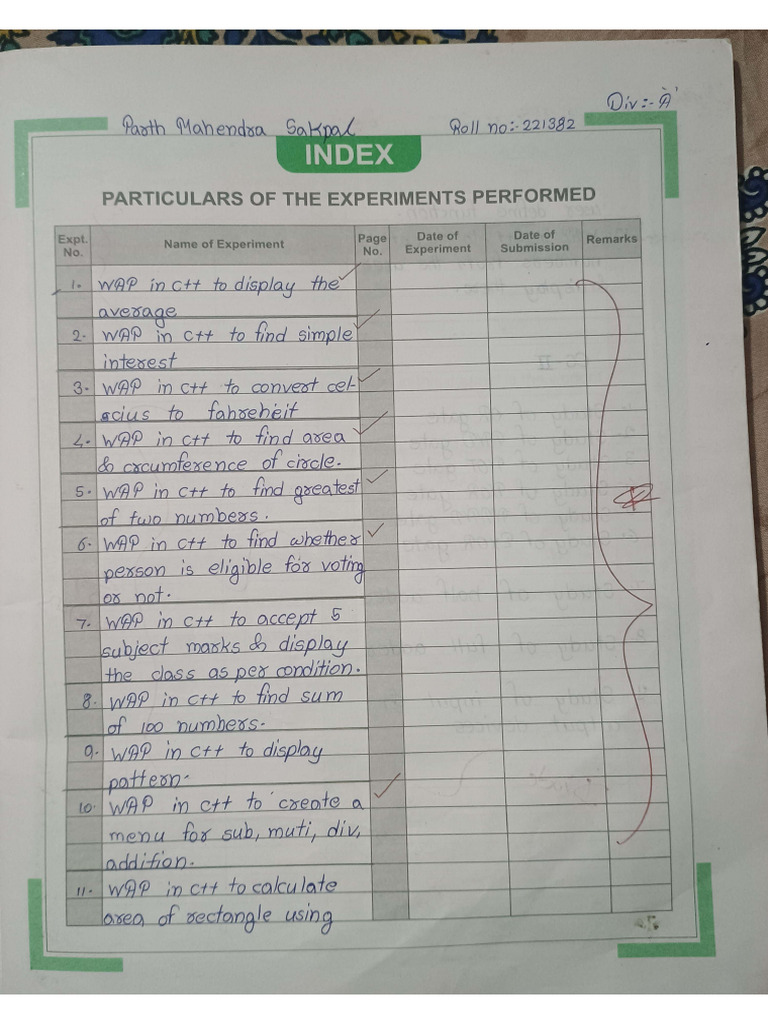 Div:- 'A'
Parth Mahendra Sakpal Roll no:- 221382
INDEX
PARTICULARS OF THE EXPERIMENTS PERFORMED
Expt. No. Name of Experiment Page No. Date of Experiment Date of Submission Remarks
1. WAP in C++ to display the
average
2. WAP in C++ to find simple
interest
3. WAP in C++ to convert cel-
scius to fahreheit
4. WAP in C++ to find area
& circumference of circle.
5. WAP in C++ to find greatest
of two numbers.
6. WAP in C++ to find whether
person is eligible for voting
or not.
7. WAP in C++ to accept 5
subject marks & display
the class as per condition.
8. WAP in C++ to find sum
of 100 numbers.
9. WAP in C++ to display
pattern.
10. WAP in C++ to create a
menu for sub, muti, div,
addition.
11. WAP in C++ to calculate
area of rectangle using